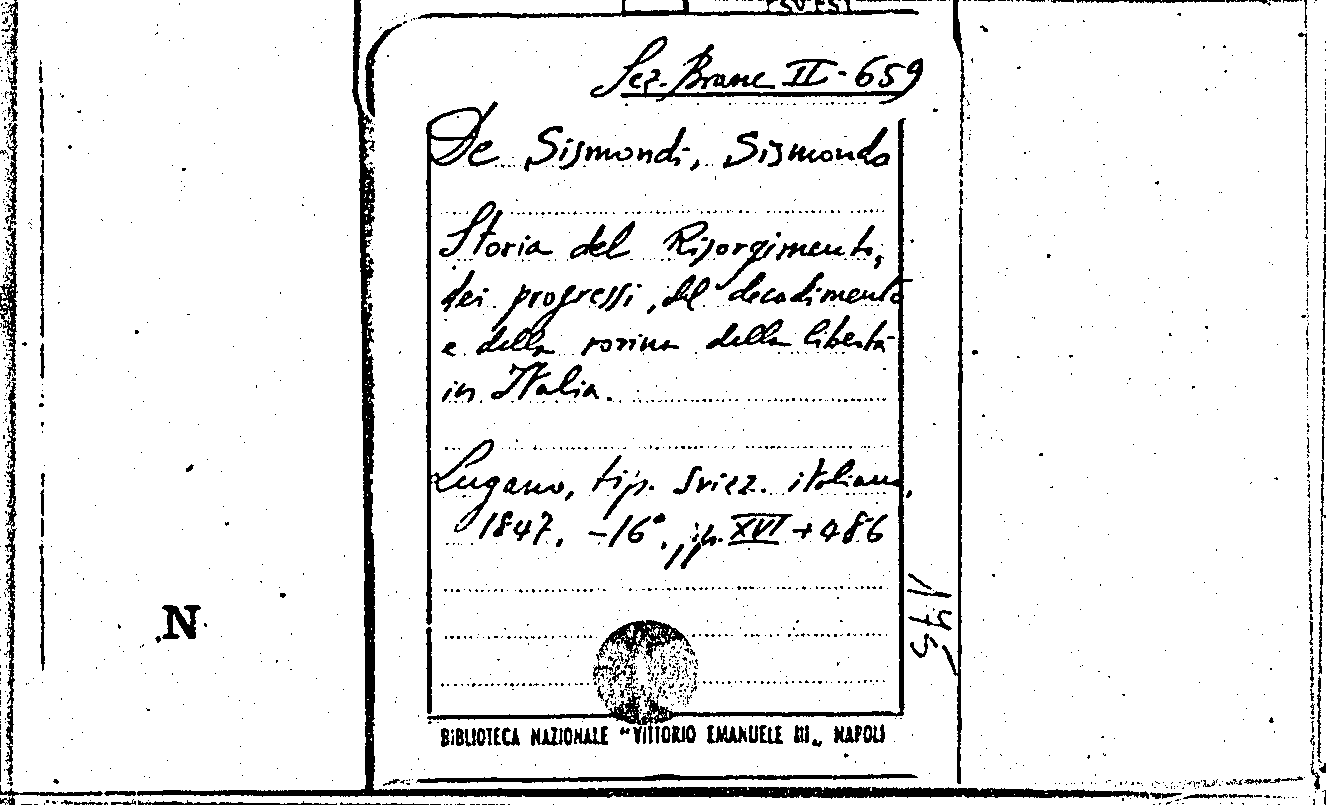 Sez. Branc II - 659
De Sismondi, Sismondo
Storia del Risorgimento,
dei progressi, del decadimento
e della rovina della libertà
in Italia.
Lugano, tip. Sviz. italiana,
1847. -16°. pp. XVI + 486
175
N
BIBLIOTECA NAZIONALE "VITTORIO EMANUELE III„ NAPOLI